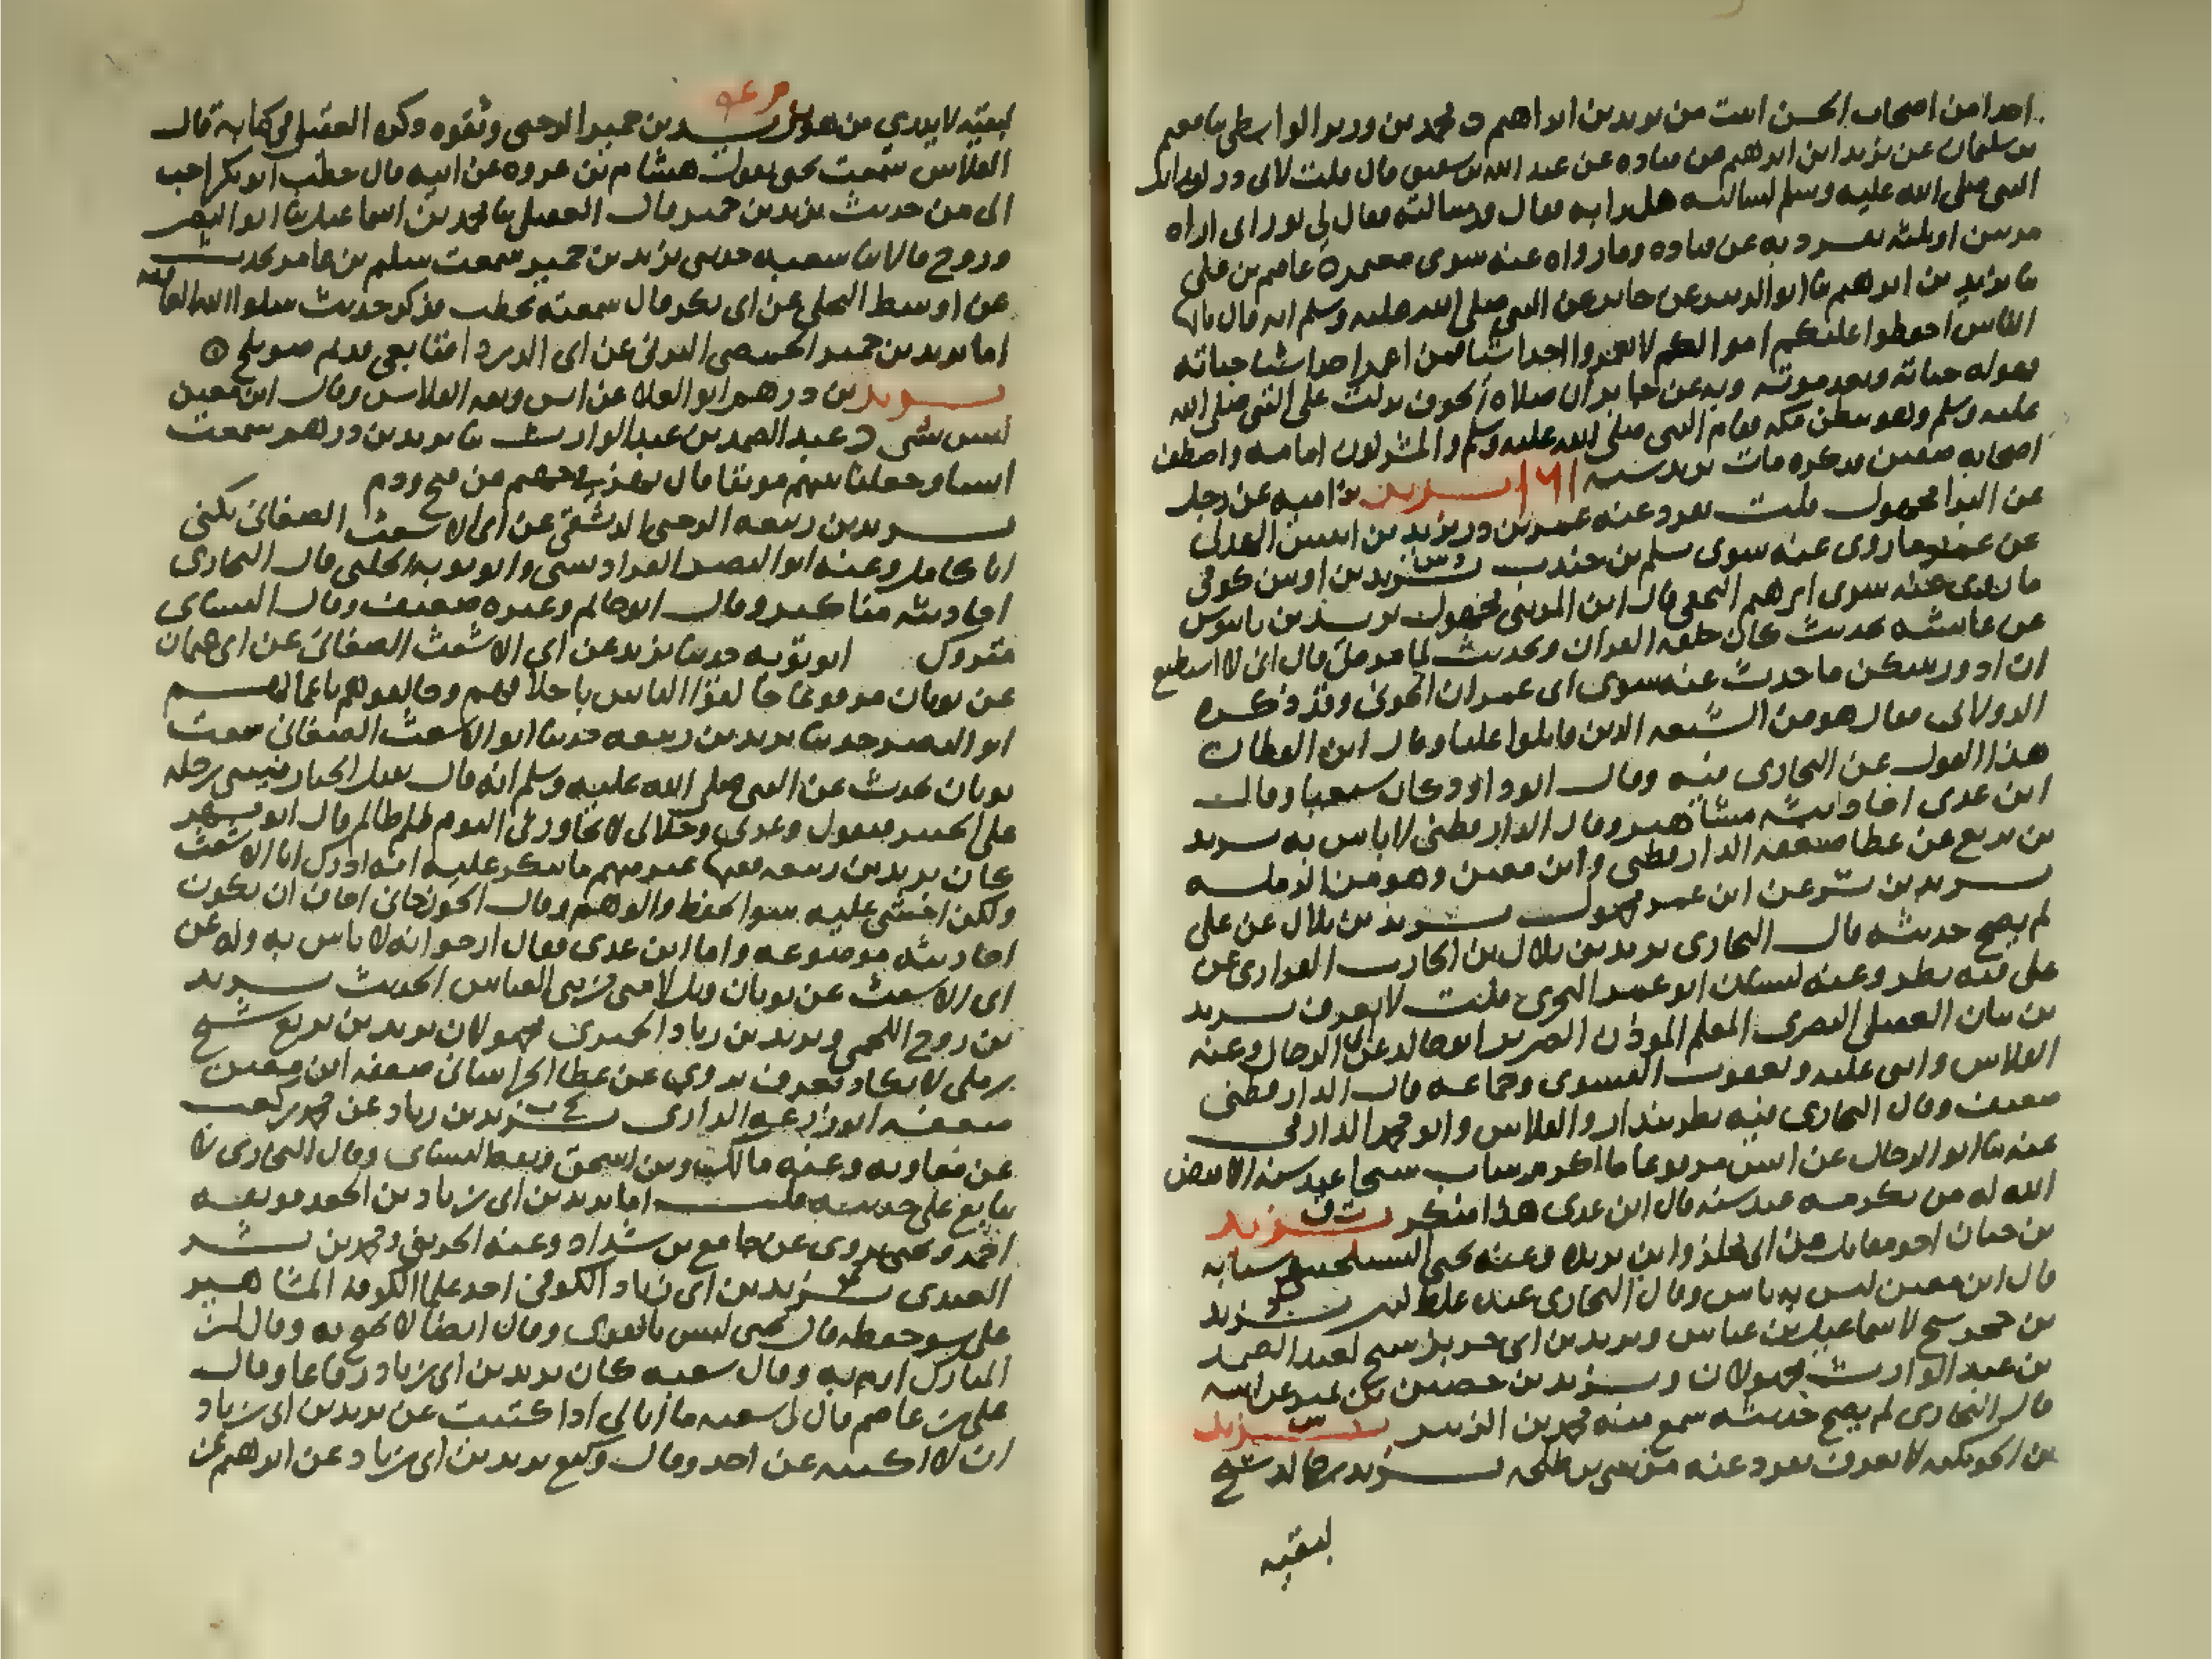 احدا من اصحاب الحسن اثبت من يزيد بن ابراهيم محمد بن وزير الواسطي ثنا معتمر
بن سليمان عن يزيد ابن ابرهيم عن قتاده عن عبد الله بن شقيق قال قلت لابي ذر لو رايت
النبي صلى الله عليه وسلم لسالته هل راى ربه فقال قد سالته فقال لي نور اني اراه
مرتين او ثلثه تفرد به عن قتاده وما رواه عنه سوى معتمر عاصم بن علي
ثنا يزيد بن ابرهيم ثنا ابو الزبير عن جابر عن النبي صلى الله عليه وسلم انه قال يا ايها
الناس احفظوا عليكم اموالكم لا تعمروا احدا شيئا فمن اعمر احدا شيئا حياته
فهو له حياته وبعد موته وبه عن جابر ان صلاة الخوف نزلت على النبي صلى الله
عليه وسلم وهو ببطن مكه فقام النبي صلى الله عليه وسلم والمشركون امامه واصطف
اصحابه صفين فذكره مات يزيد سنه ١٦١ يزيد بن اميه عن رجل
عن البرا مجهول قلت تفرد عنه عمر بن ذر يزيد بن انيس الهذلي
عن عمر ما روى عنه سوى مسلم بن جندب يزيد بن اوس كوفي
ما روى عنه سوى ابرهيم النخعي قال ابن المديني مجهول يزيد بن بابنوس
عن عايشه بحديث كان خلقه القران وبحديث لما مرض قال اني لا استطيع
ان ادور بينكن ما حدث عنه سوى ابي عمران الجوني وقد ذكره
الدولابي فقال هو من الشيعه الذين قاتلوا عليا وقال ابن القطان
هذا القول عن البخاري فيه وقال ابو داود كان شيعيا وقال
ابن عدي احاديثه مشاهير وقال الدارقطني لا باس به يزيد
بن بزيع عن عطا ضعفه الدارقطني وابن معين وهو من الرمله
يزيد بن بشر عن ابن عمر مجهول يزيد بن بلال عن علي
لم يصح حديثه قال البخاري يزيد بن بلال بن الحارث الفزاري عن
علي فيه نظر وعنه كيسان ابو عمر الهجري قلت لا يعرف يزيد
بن بيان العقيلي البصري المعلم الموذن الضرير ابو خالد عن ابي الرحال وعنه
الفلاس واثنى عليه ويعقوب الفسوي وجماعه قال الدارقطني
ضعيف وقال البخاري فيه نظر بندار والفلاس وابو محمد الدارمي
عنه ثنا ابو الرحال عن انس مرفوعا ما اكرم شاب شيخا عند سنه الا قيض
الله له من يكرمه عند سنه قال ابن عدي هذا منكر يزيد
بن حيان اخو مقاتل عن ابي مجلز وابن بريده وعنه يحيى السيلحيني وشبابه
قال ابن معين ليس به باس وقال البخاري عنده غلط كثير يزيد
بن حجر شيخ لاسماعيل بن عياش ويزيد بن ابي حريز شيخ لعبد الصمد
بن عبد الوارث مجهولان ويزيد بن حصين بن نمير عن ابيه
قال البخاري لم يصح حديثه سمع منه محمد بن الزبير يزيد
بن الحوتكيه لا يعرف تفرد عنه موسى بن طلحه يزيد بن خالد شيخ
لبقيه
لبقيه لا يدري من هو يزيد بن خمير الرحبي وثقوه وذكره العقيلي في كتابه قال
الفلاس سمعت يحيى يقول هشام بن عروه عن ابيه قال خطب ابو بكر احب
الى من حديث يزيد بن خمير قال العقيلي ثنا محمد بن اسماعيل ثنا ابو النضر
وروح قالا ثنا شعبه حدثني يزيد بن خمير سمعت سليم بن عامر يحدث
عن اوسط البجلي عن ابي بكر قال سمعته يخطب فذكر حديث سلوا الله العافيه
اما يزيد بن خمير الحمصي اليزني عن ابي الدرداء فتابعي قديم صويلح
يزيد بن درهم ابو العلا عن انس وثقه الفلاس وقال ابن معين
ليس بشي عبد الصمد بن عبد الوارث ثنا يزيد بن درهم سمعت
انسا وجعلنا بينهم موبقا قال نهر في جهنم من قيح ودم
يزيد بن ربيعه الرحبي الدمشقي عن ابي الاشعث الصنعاني يكنى
ابا كامل وعنه ابو النضر الفراديسي وابو توبه الحلبي قال البخاري
احاديثه مناكير وقال ابو حاتم وغيره ضعيف وقال النسائي
متروك ابو توبه حدثنا يزيد عن ابي الاشعث الصنعاني عن ابي عثمان
عن ثوبان مرفوعا خالقوا الناس باخلاقهم وخالفوهم باعمالهم
ابو النضر حدثنا يزيد بن ربيعه حدثنا ابو الاشعث الصنعاني سمعت
ثوبان يحدث عن النبي صلى الله عليه وسلم انه قال يقبل الجبار فيثني رجله
على الجسر فيقول وعزتي وجلالي لا يجاوزني اليوم ظلم ظالم قال ابو مسهر
كان يزيد بن ربيعه فقيها غير متهم ما ينكر عليه انه ادرك ابا الاشعث
ولكن اخشى عليه سوا الحفظ والوهم وقال الجوزجاني اخاف ان تكون
احاديثه موضوعه واما ابن عدي فقال ارجوا انه لا باس به وله عن
ابي الاشعث عن ثوبان ويل لامتي من بني العباس الحديث يزيد
بن روح اللخمي ويزيد بن زياد الحميري مجهولان يزيد بن بزيع شيخ
رملي لا يكاد يعرف يروي عن عطا الخراساني ضعفه ابن معين
ضعفه ابو زرعه الرازي يزيد بن زياد عن محمد بن كعب
عن معاويه وعنه مالك وبن اسحق وثقه النسائي وقال البخاري لا
يتابع على حديثه قلت اما يزيد بن ابي زياد بن الجعد فوثقه
احمد ويحيى يروي عن جامع بن شداد وعنه الخريبي ومحمد بن بشر
العبدي يزيد بن ابي زياد الكوفي احد علما الكوفه المشاهير
على سو حفظه قال يحيى ليس بالقوي وقال ايضا لا يحتج به وقال بن
المبارك ارم به وقال شعبه كان يزيد بن ابي زياد رفاعا وقال
علي بن عاصم قال لي شعبه ما ابالي اذا كتبت عن يزيد بن ابي زياد
ان لا اكتبه عن احد وقال وكيع يزيد بن ابي زياد عن ابراهيم عن